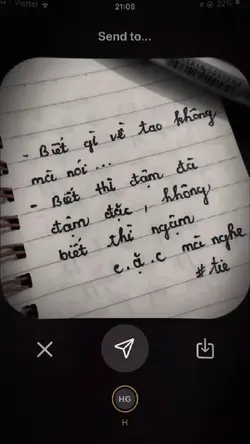 Viettel
21:08
32%
Send to...
- Biết gì về tao không
mà nói ...
- Biết thì đậm đà
đậm đặc, không
biết thì ngậm
c.ặ.c mà nghe
#tie
HG
H